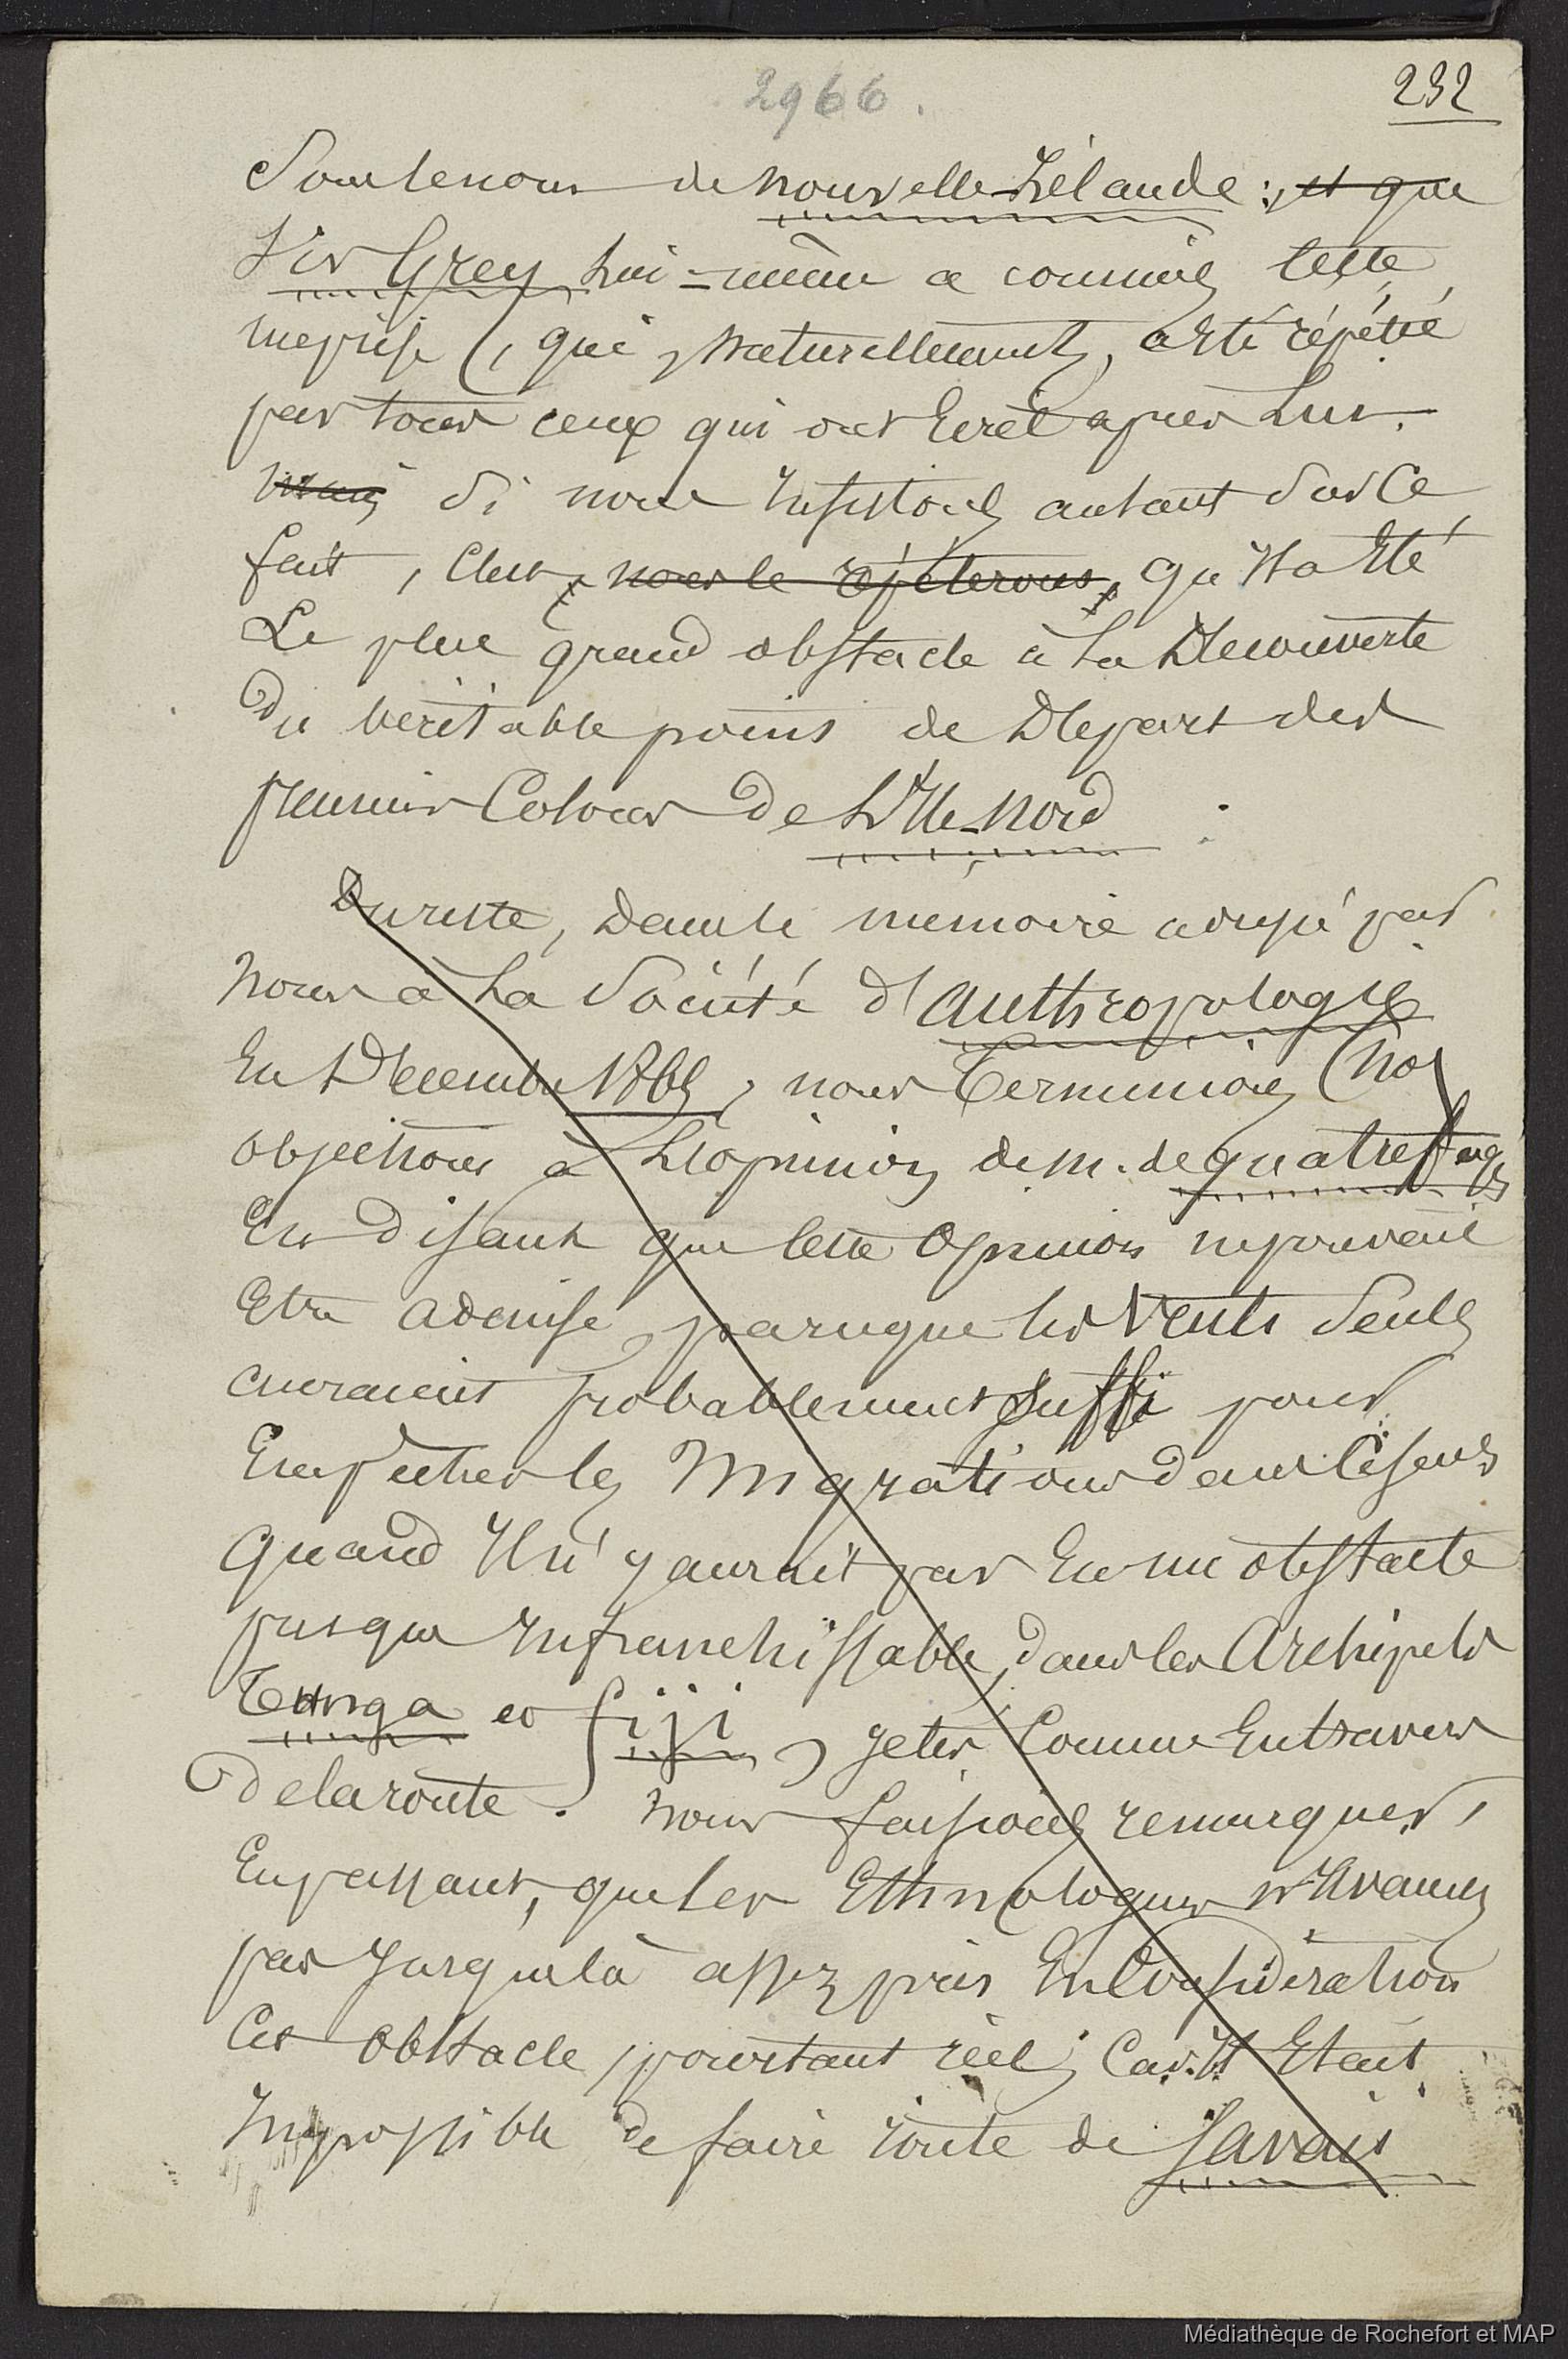 2966.
232
Soutenons de nouvelle-Zélande : et que
Sir Grey lui-même a commis cette
meprise, qui, Naturellement, a Eté répétée
par tous ceux qui ont Ecrit après Lui.
Mais Si nous Insistons autant sur Ce
fait, C'est, nous le répéterons, qu'Il a Eté
Le plus grand obstacle à La Découverte
Du véritable point de Départ des
premiers Colons De L'Ile-Nord.
Du reste, Dans le mémoire adressé par
Nous à La Société d'Anthropologie
En Décembre, nous Terminions nos
objections à L'opinion de m. de quatrefages
En Disant que cette opinion ne pouvait
Etre admise, parceque les Vents Seuls
auraient probablement Suffi pour
Empêcher les Migrations dans Ce sens
Quand Il n'y aurait pas Eu un obstacle
presque Infranchissable, dans les Archipels
Tunga et fiji, jetés Comme Entravers
de la route. Nous faisions remarquer,
En passant, que les Ethnologues n'Avaient
pas Jusque là assez pris En Considération
Cet obstacle, pourtant réel; Car Il Etait
Impossible de faire route de Savaii
Médiathèque de Rochefort et MAP